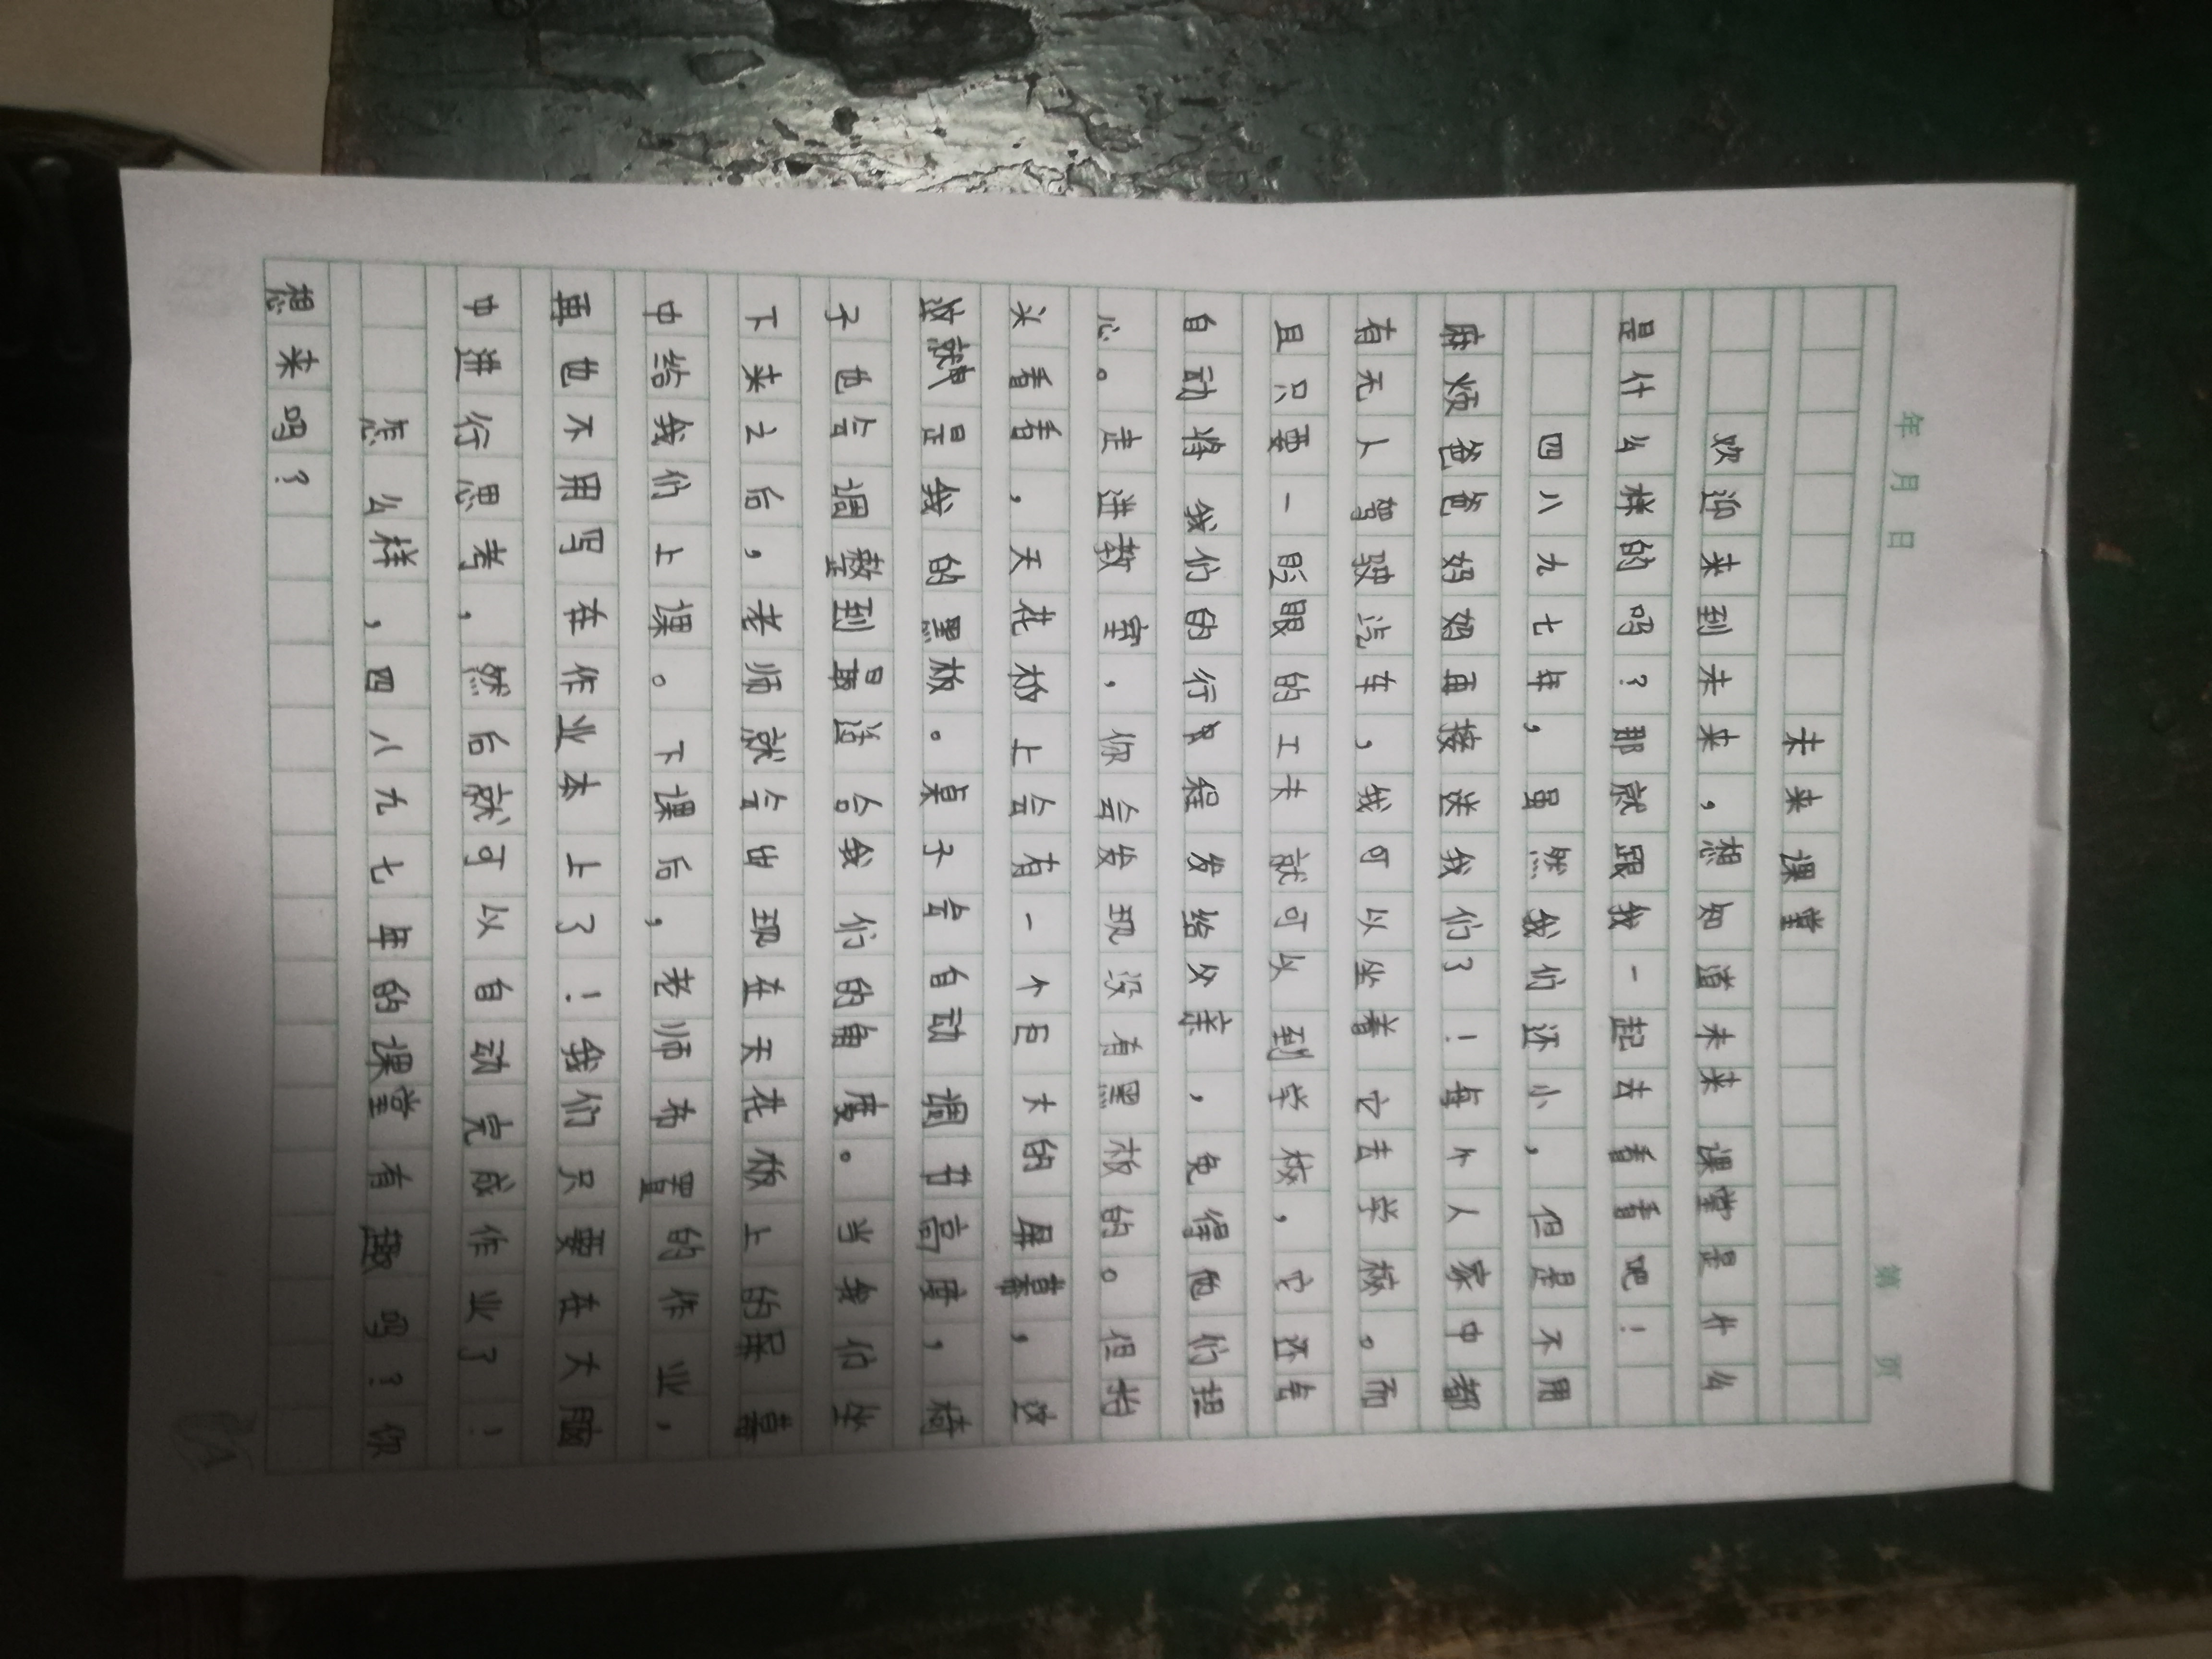 年 月 日
第 页
未来课堂
欢迎来到未来，想知道未来课堂是什么
是什么样的吗？那就跟我一起去看看吧！
四八九七年，虽然我们还小，但是不用
麻烦爸爸妈妈再接送我们了！每个人家中都
有无人驾驶汽车，我可以坐着它去学校。而
且只要一眨眼的工夫就可以到学校，它还会
自动将我们的行程发给父亲，免得他们担
心。走进教室，你会发现没有黑板的。但抬
头看看，天花板上会有一个巨大的屏幕，这
就是我的黑板。桌子会自动调节高度，椅
子也会调整到最适合我们的角度。当我们坐
下来之后，老师就会出现在天花板上的屏幕
中给我们上课。下课后，老师布置的作业，
再也不用写在作业本上了！我们只要在大脑
中进行思考，然后就可以自动完成作业了！
怎么样，四八九七年的课堂有趣吗？你
想来吗？